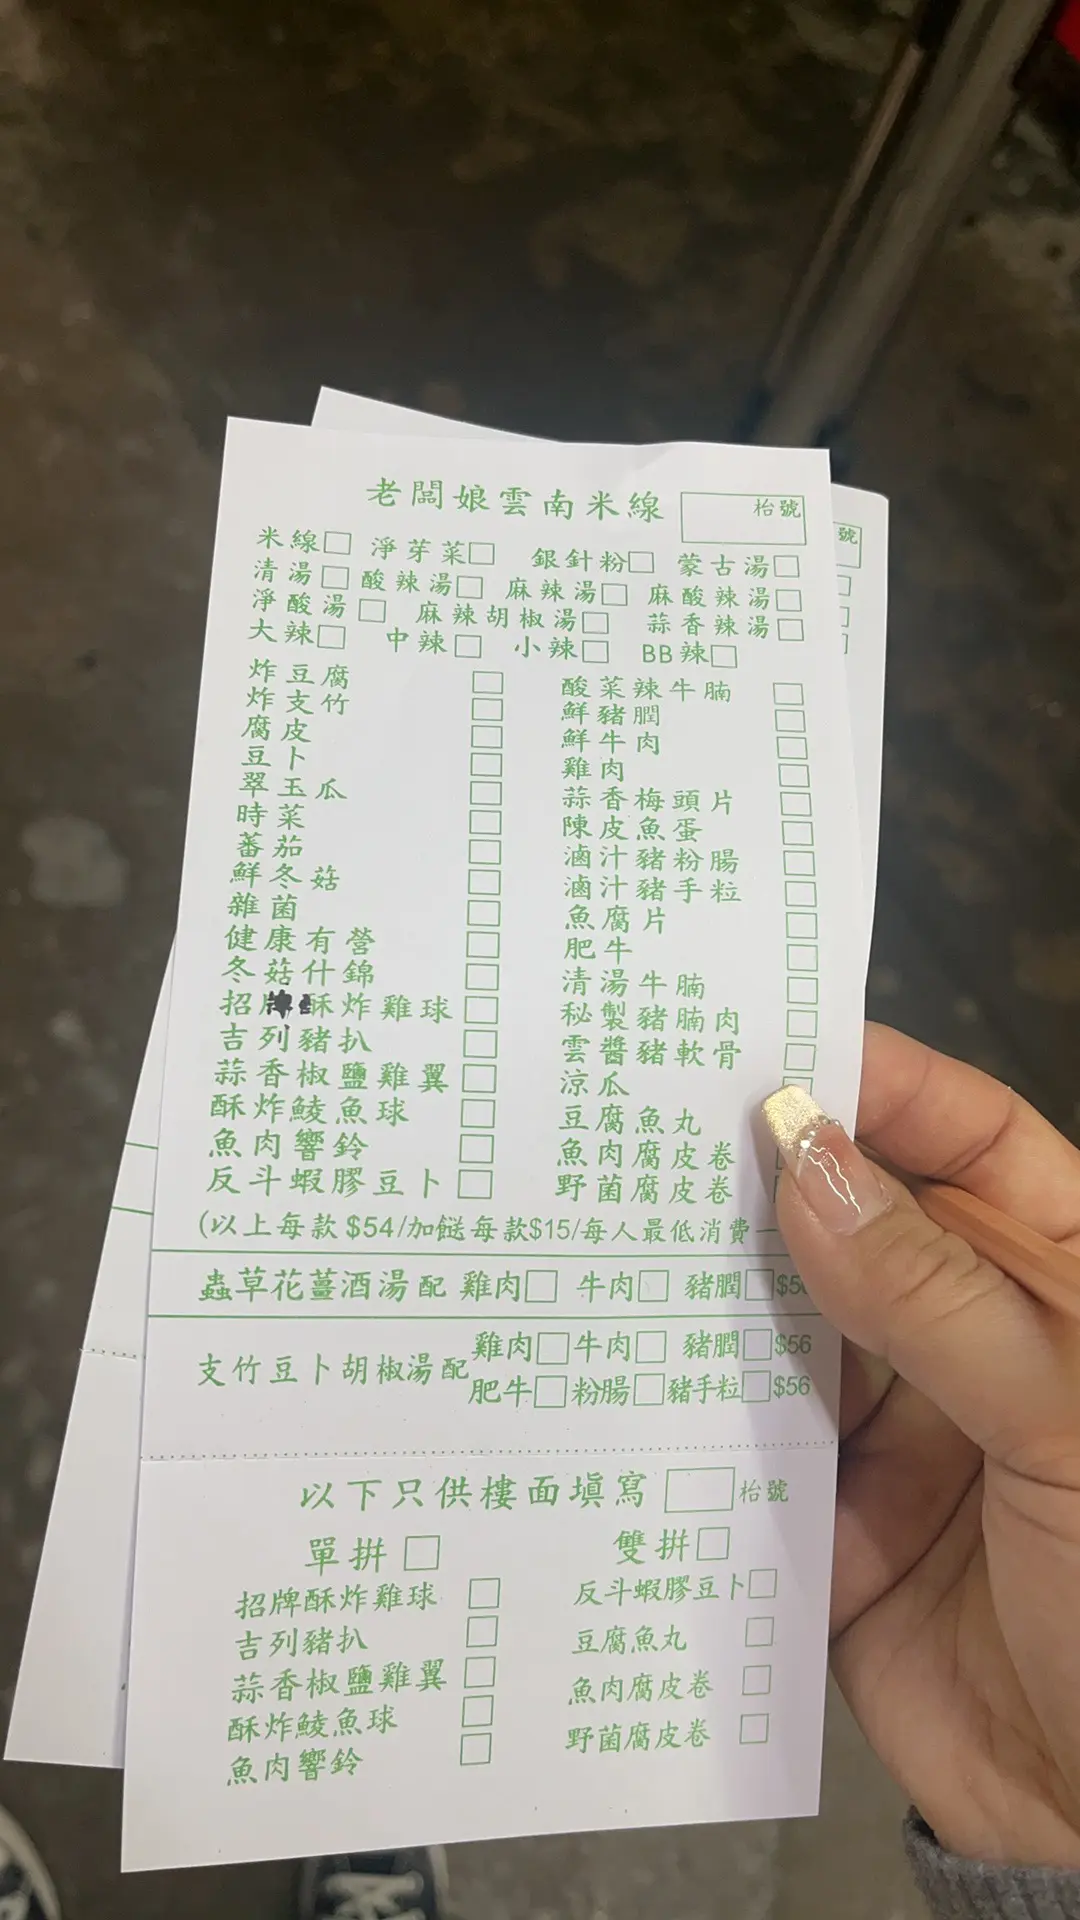 老闆娘雲南米線 枱號
號
米線 淨芽菜 銀針粉 蒙古湯
清湯 酸辣湯 麻辣湯 麻酸辣湯
淨酸湯 麻辣胡椒湯 蒜香辣湯
大辣 中辣 小辣 BB辣
炸豆腐 酸菜辣牛腩
炸支竹 鮮豬膶
腐皮 鮮牛肉
豆卜 雞肉
翠玉瓜 蒜香梅頭片
時菜 陳皮魚蛋
蕃茄 滷汁豬粉腸
鮮冬菇 滷汁豬手粒
雜菌 魚腐片
健康有營 肥牛
冬菇什錦 清湯牛腩
招牌酥炸雞球 秘製豬腩肉
吉列豬扒 雲醬豬軟骨
蒜香椒鹽雞翼 涼瓜
酥炸鯪魚球 豆腐魚丸
魚肉響鈴 魚肉腐皮卷
反斗蝦膠豆卜 野菌腐皮卷
(以上每款$54/加餸每款$15/每人最低消費一
蟲草花薑酒湯配 雞肉 牛肉 豬膶
支竹豆卜胡椒湯配 雞肉 牛肉 豬膶 $56
肥牛 粉腸 豬手粒 $56
以下只供樓面填寫 枱號
單拼 雙拼
招牌酥炸雞球 反斗蝦膠豆卜
吉列豬扒 豆腐魚丸
蒜香椒鹽雞翼 魚肉腐皮卷
酥炸鯪魚球 野菌腐皮卷
魚肉響鈴